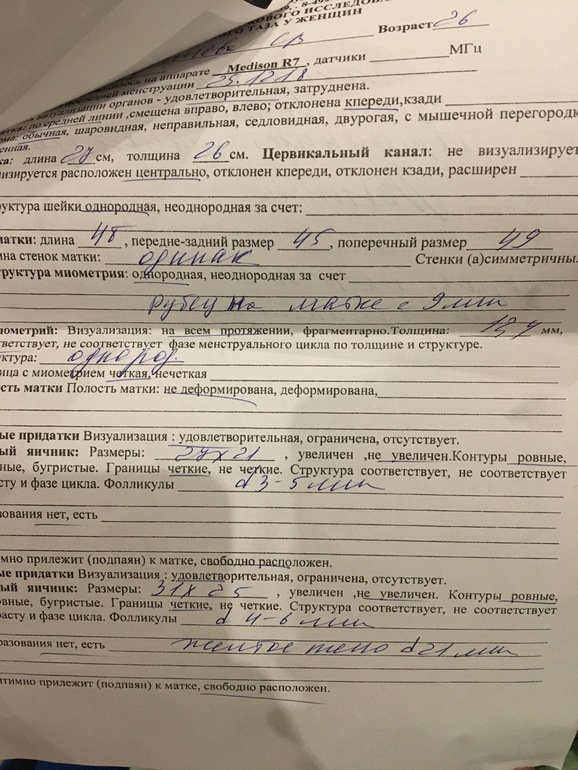 КОВОГО ИССЛЕДОВА
ТАЗА У ЖЕНЩИН
СВ Возраст 26
на аппарате Medison R7, датчики МГц
менструации 25.12.18
визуализации органов - удовлетворительная, затруднена.
по средней линии ,смещена вправо, влево; отклонена кпереди,кзади
обычная, шаровидная, неправильная, седловидная, двурогая, с мышечной перегородк
енная.
ка: длина 27 см, толщина 26 см. Цервикальный канал: не визуализирует
изируется расположен центрально, отклонен кпереди, отклонен кзади, расширен
руктура шейки однородная, неоднородная за счет:
матки: длина 48, передне-задний размер 45, поперечный размер 49
ина стенок матки: одинак Стенки (а)симметричны.
труктура миометрия: однородная, неоднородная за счет
рубец на матке с 9 мм
иометрий: Визуализация: на всем протяжении, фрагментарно.Толщина: мм,
ответствует, не соответствует фазе менструального цикла по толщине и структуре.
ктура: однород.
ица с миометрием четкая, нечеткая
ость матки Полость матки: не деформирована, деформирована,
ые придатки Визуализация : удовлетворительная, ограничена, отсутствует.
ый яичник: Размеры: 27х21 , увеличен ,не увеличен.Контуры ровные,
ные, бугристые. Границы четкие, не четкие. Структура соответствует, не соответствует
сту и фазе цикла. Фолликулы d 3-5 мм
зования нет, есть
тимно прилежит (подпаян) к матке, свободно расположен.
ые придатки Визуализация : удовлетворительная, ограничена, отсутствует.
ый яичник: Размеры: 31х25 , увеличен ,не увеличен. Контуры ровные,
овные, бугристые. Границы четкие, не четкие. Структура соответствует, не соответствует
расту и фазе цикла. Фолликулы d 4-6 мм
разования нет, есть желтое тело d 21 мм
нтимно прилежит (подпаян) к матке, свободно расположен.